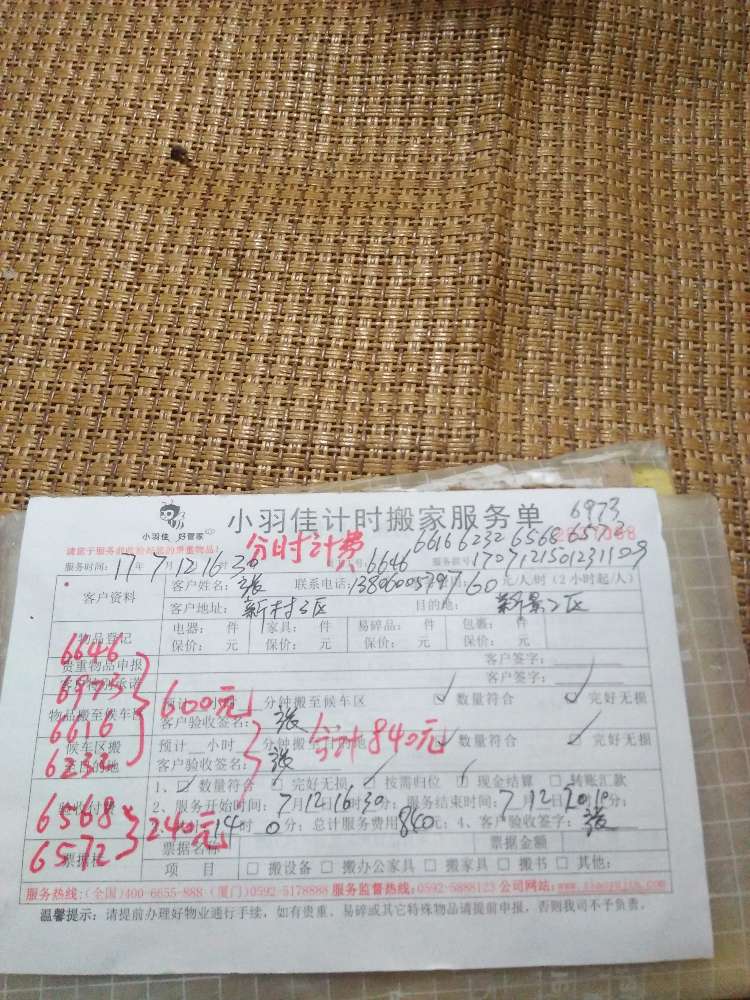 小羽佳 好管家
小羽佳计时搬家服务单
6973
6616 6232 6568 6572
请您于服务前收捡好您的贵重物品！
分时计费
6646
1707121501231109
服务时间：17年7月12 16 30
客户资料 客户姓名：张 联系电话： 60元/人/时（2小时起/人）
客户地址：新村三区 目的地：新景二区
物品登记 电器： 件 家具： 件 易碎品： 件 包裹： 件
保价： 元 保价： 元 保价： 元 保价： 元
6646
贵重物品申报 客户签字：
6973
客户签字：
600元
物品搬至候车区 分钟搬至候车区 ☑ 数量符合 ☑ 完好无损
6616
客户验收签名：张
合计840元
候车区搬至目的地 预计 小时 分钟搬至目的地 ☑ 数量符合 ☑ 完好无损
6232
客户验收签名：张
验收付费 1、☑ 数量符合 ☐ 完好无损 ☐ 按需归位 ☐ 现金结算 ☐ 转账汇款
6568
2、服务开始时间：7月12日16时30分；服务结束时间：7月12日20时10分；
240元
14时0分；总计服务费用840元；4、客户验收签字：张
6572
票据栏 票据名称 票据金额
项 目 ☐ 搬设备 ☐ 搬办公家具 ☐ 搬家具 ☐ 搬书 ☐ 其他：
服务热线：(全国)400-6655-888 (厦门)0592-5178888 服务监督热线：0592-5888123 公司网站：www.xiaoyujia.com
温馨提示：请提前办理好物业通行手续，如有贵重、易碎或其它特殊物品请提前申报，否则我司不予负责。